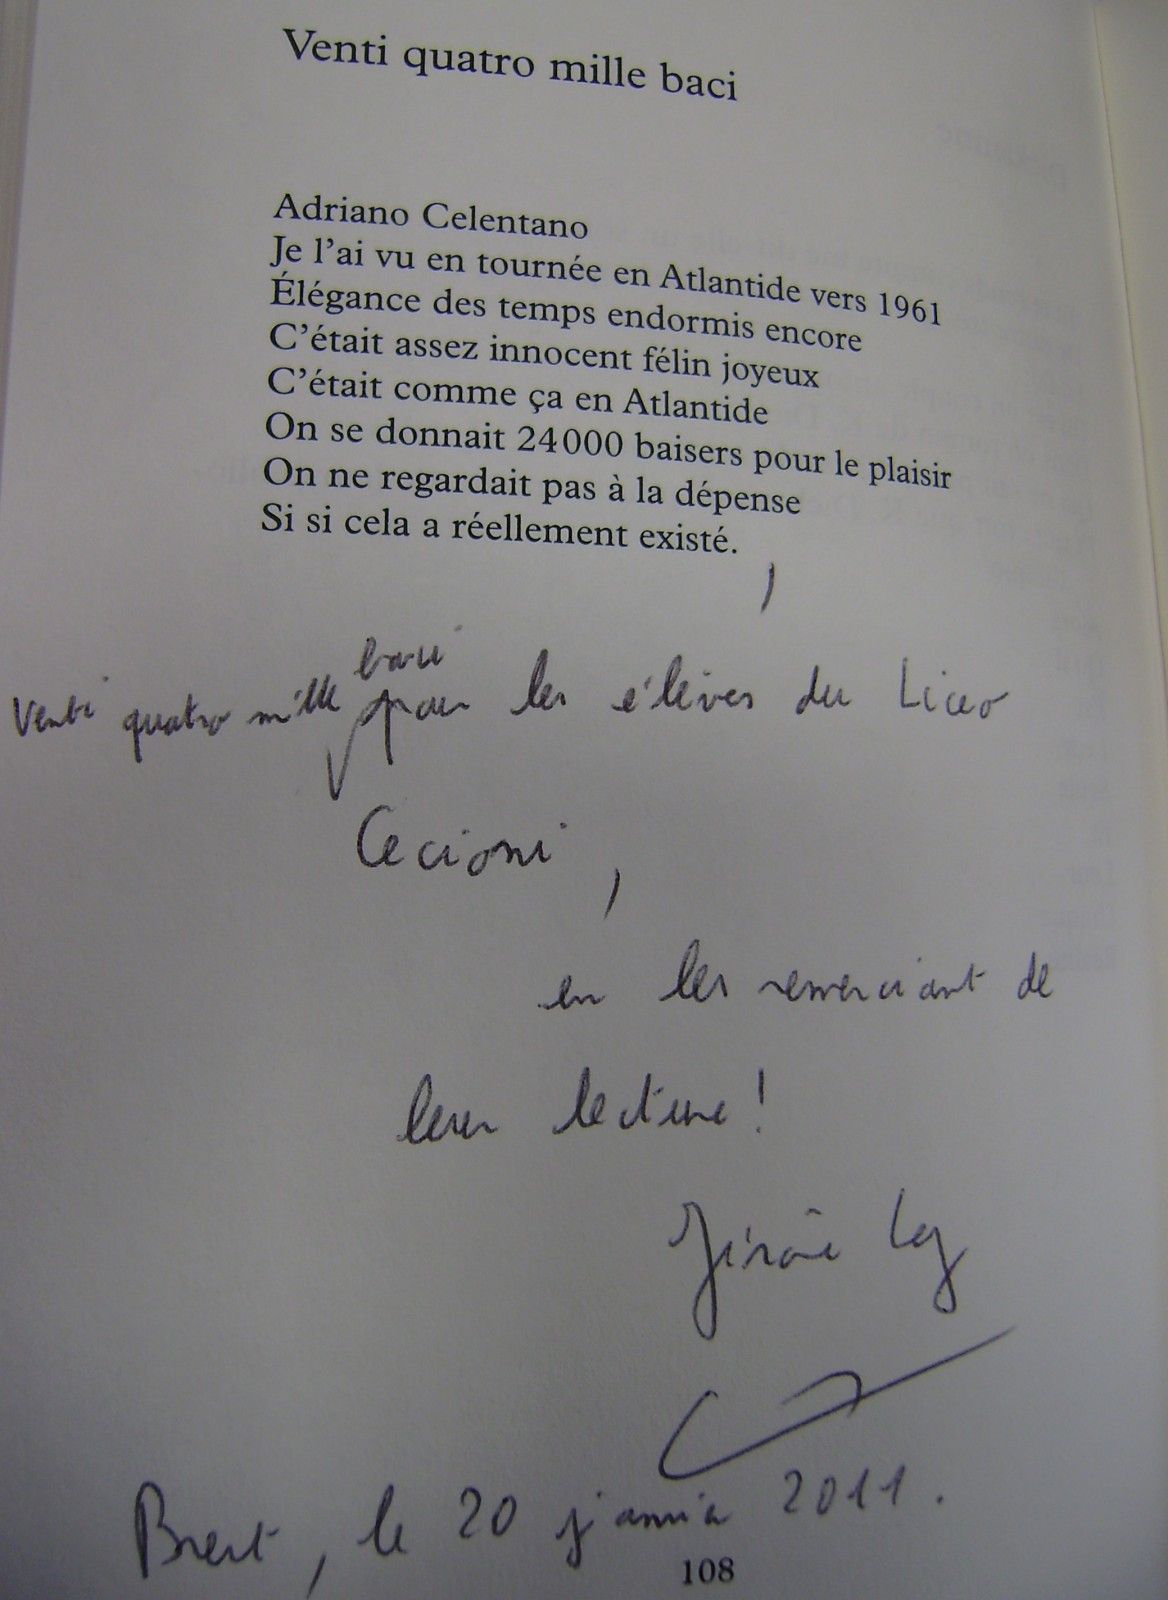 Venti quatro mille baci
Adriano Celentano
Je l'ai vu en tournée en Atlantide vers 1961
Élégance des temps endormis encore
C'était assez innocent félin joyeux
C'était comme ça en Atlantide
On se donnait 24000 baisers pour le plaisir
On ne regardait pas à la dépense
Si si cela a réellement existé.
Venti quatro mille baci pour les élèves du Liceo
Cecioni,
en les remerciant de
leur lecture !
Brest, le 20 janvier 2011.
108